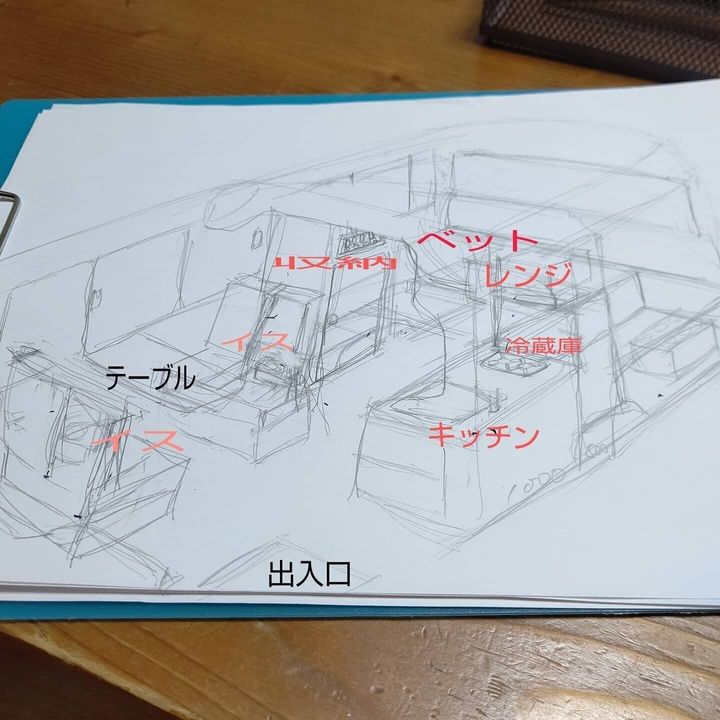 ベット
収納
レンジ
イス
冷蔵庫
テーブル
イス
キッチン
1000
出入口